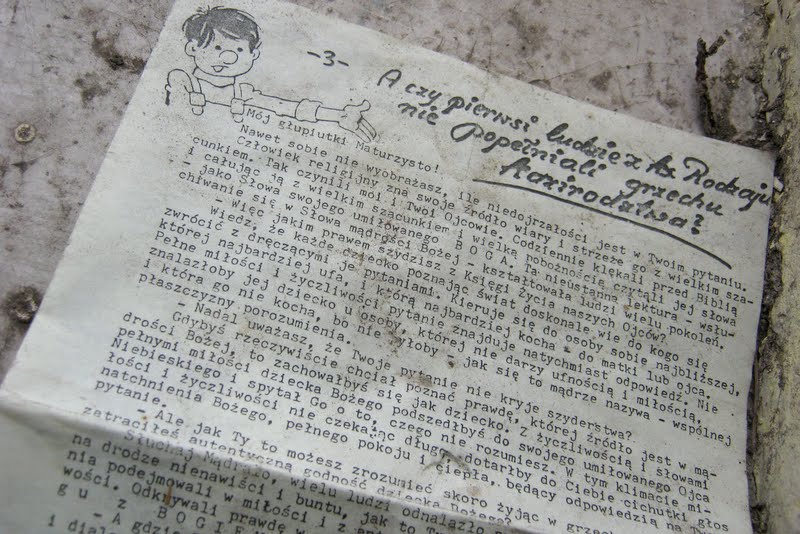 -3-
A czy pierwsi ludzie z Ks. Rodzaju
nie popełniali grzechu
kazirodztwa?
Mój głupiutki Maturzysto!
Nawet sobie nie wyobrażasz, ile niedojrzałości jest w Twoim pytaniu.
Człowiek religijny zna swoje źródło wiary i strzeże go z wielkim sza-
cunkiem. Tak czynili mój i Twoi Ojcowie. Codziennie klękali przed Biblią
i całując ją z wielkim szacunkiem i wielką pobożnością czytali jej słowa
- jako Słowa swojego umiłowanego B O G A. Ta nieustanna lektura - wsłu-
chiwanie się w Słowa mądrości Bożej - kształtowała ludzi wielu pokoleń.
- Więc jakim prawem szydzisz z Księgi Życia naszych Ojców?
Wiedz, że każde dziecko poznając świat doskonale wie do kogo się
zwrócić z dręczącymi je pytaniami. Kieruje się do osoby sobie najbliższej,
której najbardziej ufa, którą najbardziej kocha - do matki lub ojca.
Pełne miłości i życzliwości pytanie znajduje natychmiast odpowiedź. Nie
znalazłoby jej dziecko u osoby, której nie darzy ufnością i miłością,
i która go nie kocha, bo nie byłoby - jak się to mądrze nazywa - wspólnej
płaszczyzny porozumienia.
- Nadal uważasz, że Twoje pytanie nie kryje szyderstwa?
Gdybyś rzeczywiście chciał poznać prawdę, której źródło jest w mą-
drości Bożej, to zachowałbyś się jak dziecko. Z życzliwością i słowami
pełnymi miłości dziecka Bożego podszedłbyś do swojego umiłowanego Ojca
Niebieskiego i spytał Go o to, czego nie rozumiesz. W tym klimacie mi-
łości i życzliwości nie czekając długo, dotarłby do Ciebie cichutki głos
natchnienia Bożego, pełnego pokoju i ciepła, będący odpowiedzią na Tw
pytanie.
- Ale jak Ty to możesz zrozumieć skoro żyjąc w grzech
zatraciłeś autentyczną godność dziecka Bożego?
Słuchaj mądralo, wielu ludzi odnalazło
na drodze nienawiści i buntu, jak to T
nia podejmowali w miłości i z
wości. Odkrywali prawdę w
g u z B O G I E M
- A gdzi
i dial